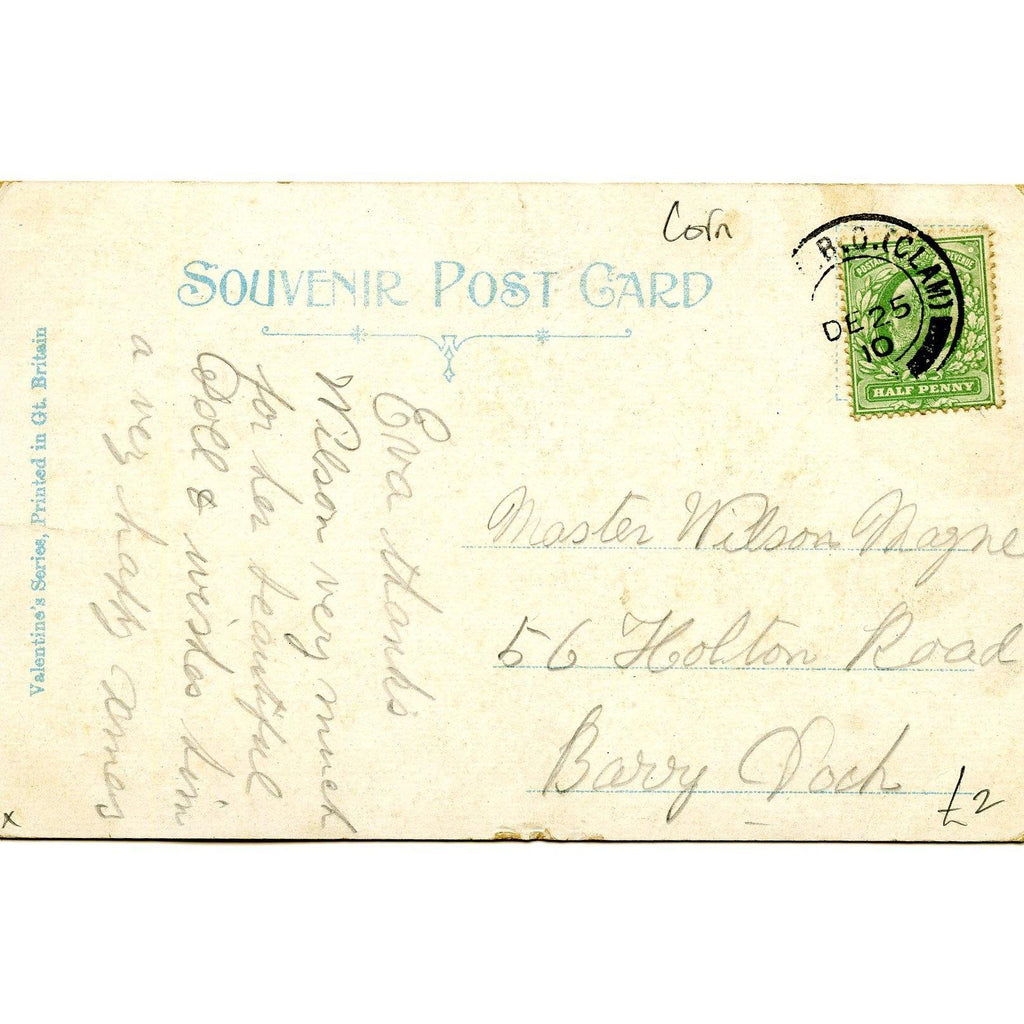 Corn
SOUVENIR POST CARD
B.O.(CLAM)
DE 25
10
POSTAGE REVENUE
HALF PENNY
Valentine's Series, Printed in Gt. Britain
Eva thanks
Wilson very much
for her beautiful
Doll & wishes him
a very happy
Master Wilson Magne
56 Holton Road
Barry Dock
£2
x